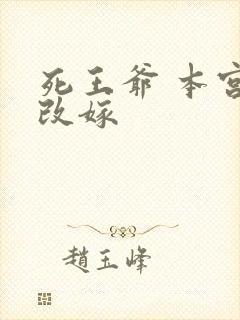 死王爷 本宫
改嫁
趙玉峰